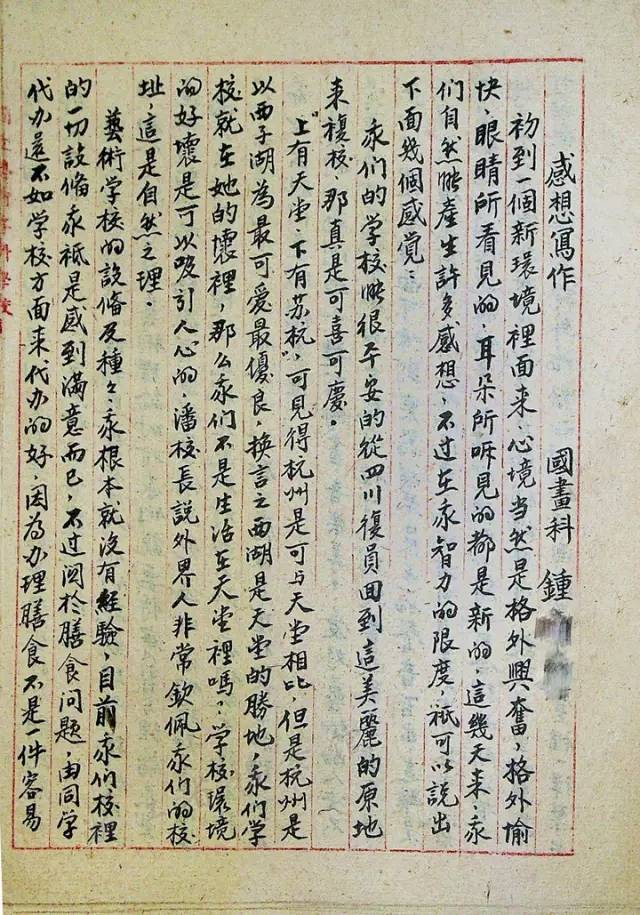 感想寫作　　國畫科　鍾
初到一個新環境裡面来，心境当然是格外興奮，格外愉
快，眼睛所看見的，耳朵所听見的都是新的，這幾天来，我
们自然能產生許多感想，不过在我智力的限度，祇可以說出
下面幾個感覚：
我们的学校能很平安的從四川復員囬到這美麗的原地
来複校，那真是可喜可慶。
“上有天堂，下有苏杭”，可見得杭州是可与天堂相比，但是杭州是
以西子湖為最可爱最優良，换言之西湖是天堂的勝地，我们学
校就在她的懐裡，那么我们不是生活在天堂裡嗎？学校環境
的好壞是可以吸引人心的，潘校長説外界人非常欽佩我们的校
址，這是自然之理。
藝術学校的設俻及種々，我根本就沒有経驗，目前我们校裡
的一切設俻我祇是感到滿意而已，不过関於膳食问題，由同学
代办還不如学校方面来代办的好，因為办理膳食不是一件容易